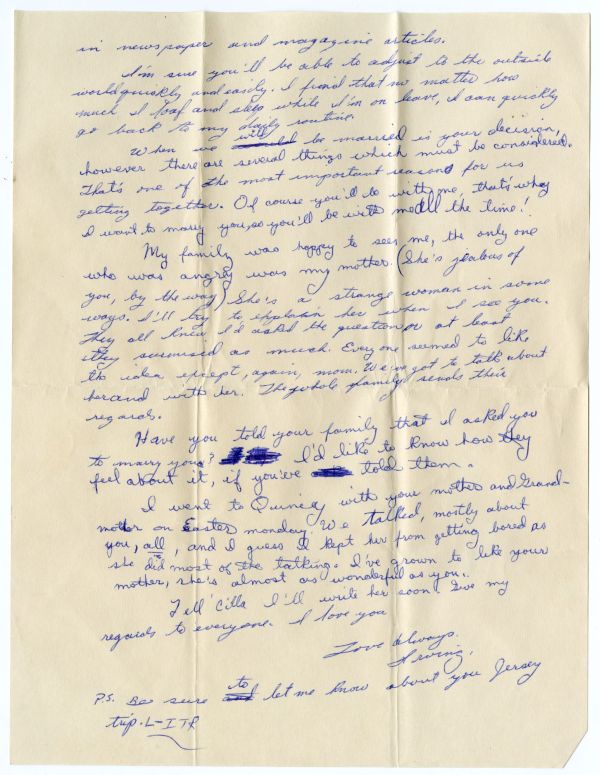 in newspaper and magazine articles.
I'm sure you'll be able to adjust to the outside
world quickly and easily. I find that no matter how
much I loaf and sleep while I'm on leave, I can quickly
go back to my daily routine.
When we will be married is your decision,
however there are several things which must be considered.
That's one of the most important reasons for us
getting together. Of course you'll be with me, that's why
I want to marry you, so you'll be with me all the time!
My family was happy to see me, the only one
who was angry was my mother. (She's jealous of
you, by the way) She's a strange woman in some
ways. I'll try to explain her when I see you.
They all knew I'd asked the question or at least
they surmised as much. Everyone seemed to like
the idea except, again, mom. We've got to talk about
her and with her. The whole family sends their
regards.
Have you told your family that I asked you
to marry you? I'd like to know how they
feel about it, if you've told them.
I went to Quincy with your mother and Grand-
mother on Easter monday. We talked, mostly about
you, all, and I guess I kept her from getting bored as
she did most of the talking. I've grown to like your
mother, she's almost as wonderful as you.
Tell 'Cilla I'll write her soon. Give my
regards to everyone. I love you
Love Always.
Irving.
P.S. Be sure to let me know about you Jersey
trip. L-ITR